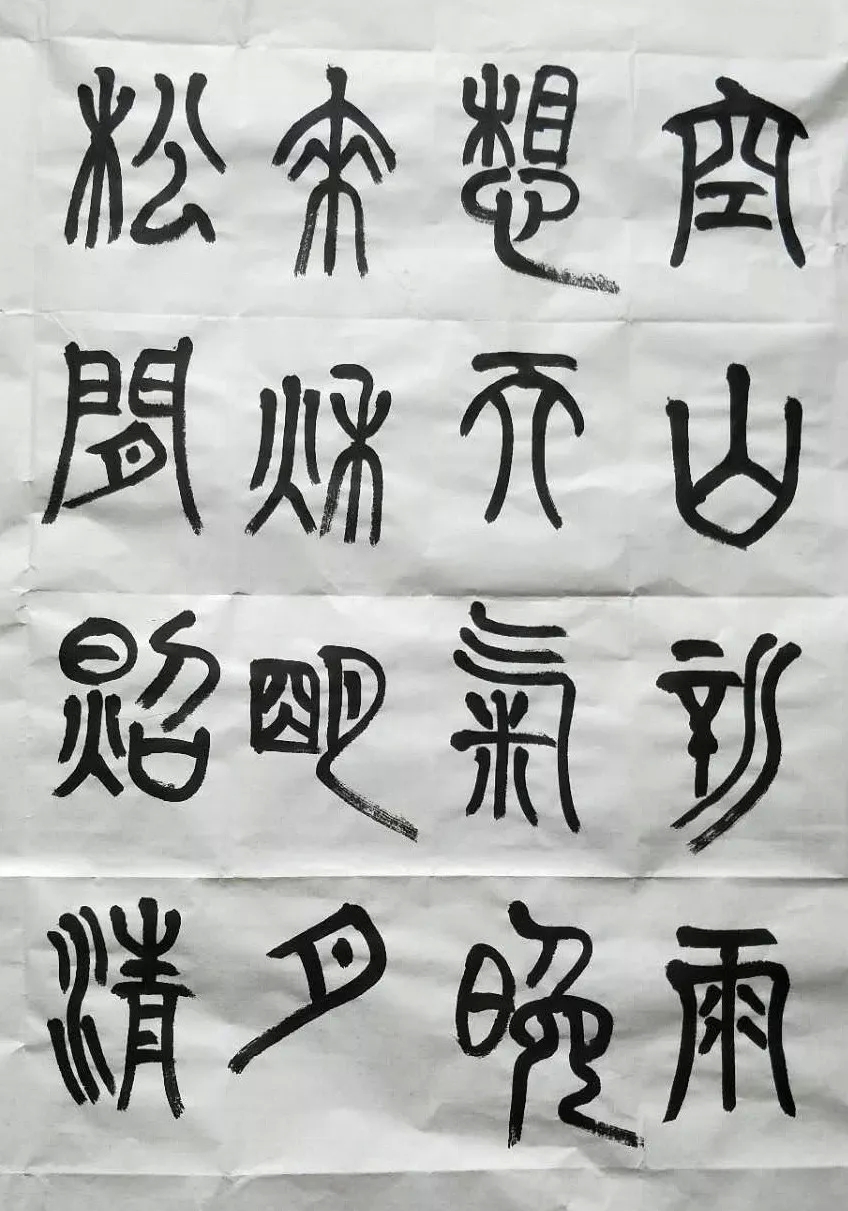 空山新雨
想天氣晚
來秋明月
松閒照清